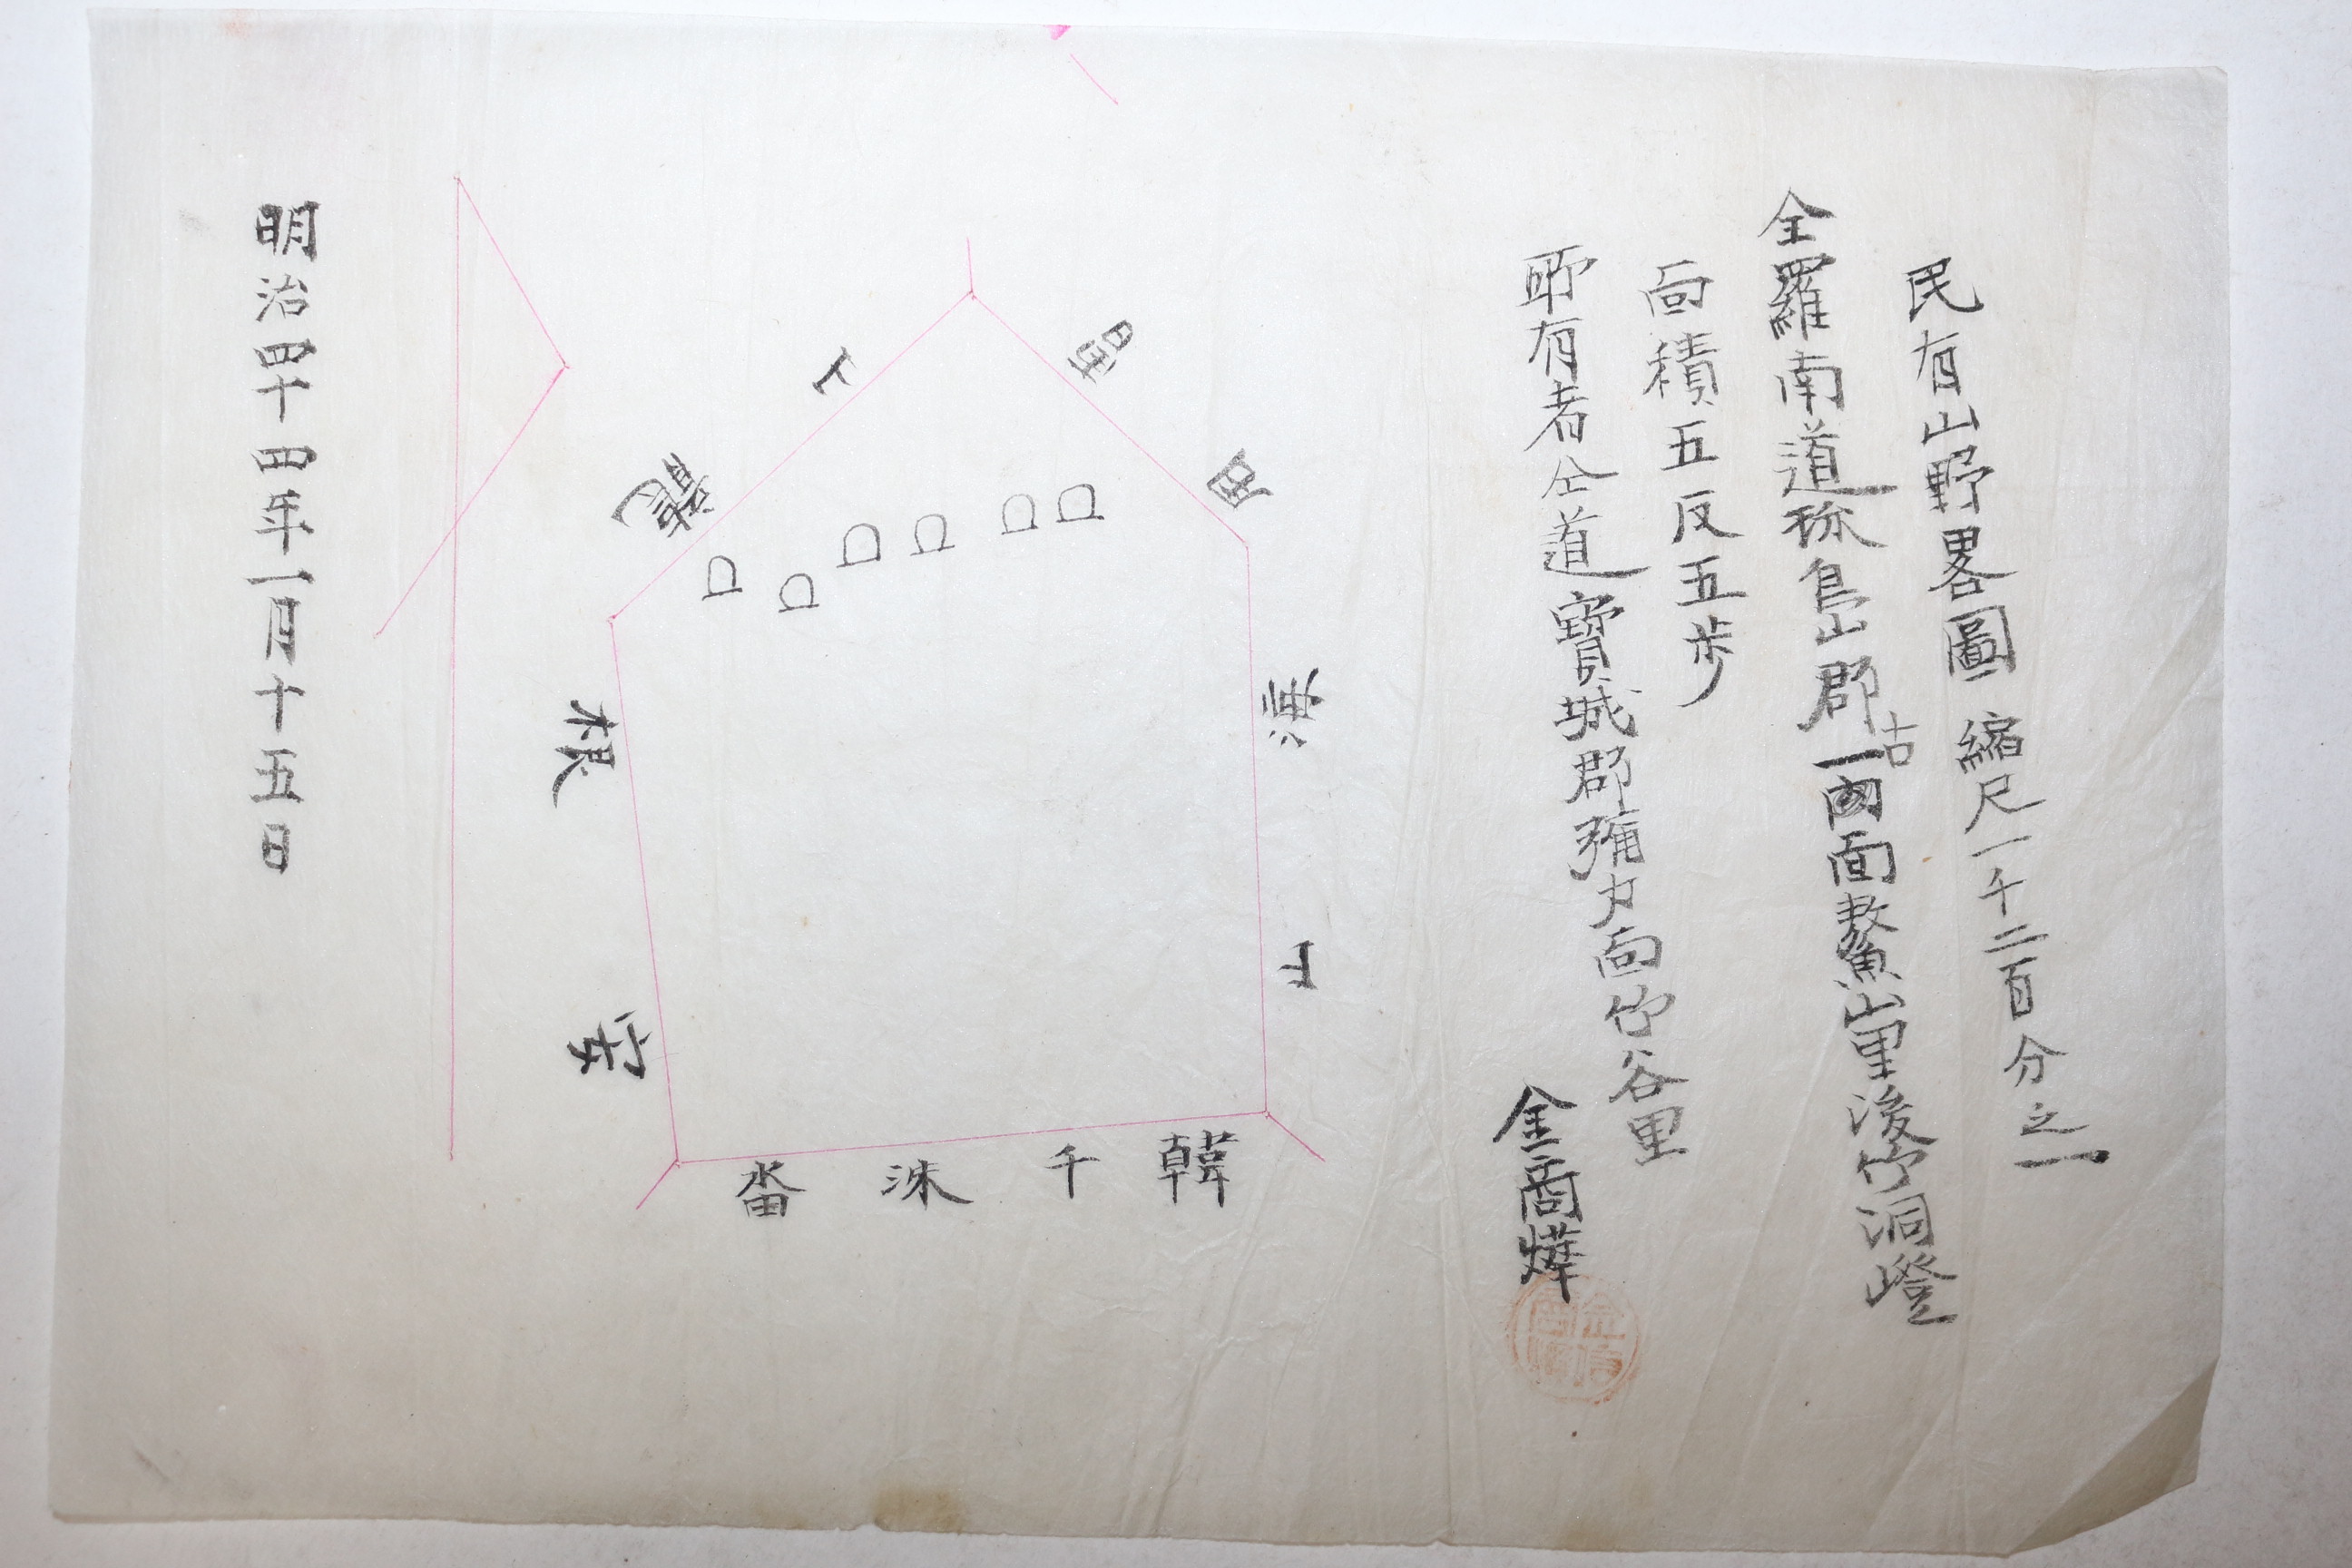 民有山野畧圖 縮尺一千二百分之一
全羅南道珎島郡古一面鰲山里後竹洞嶝
面積五反五步
所有者仝道寶城郡彌力面竹谷里
金商燁
韓
千
洙
畓
安
根
龍
海
田
明治四十四年一月十五日